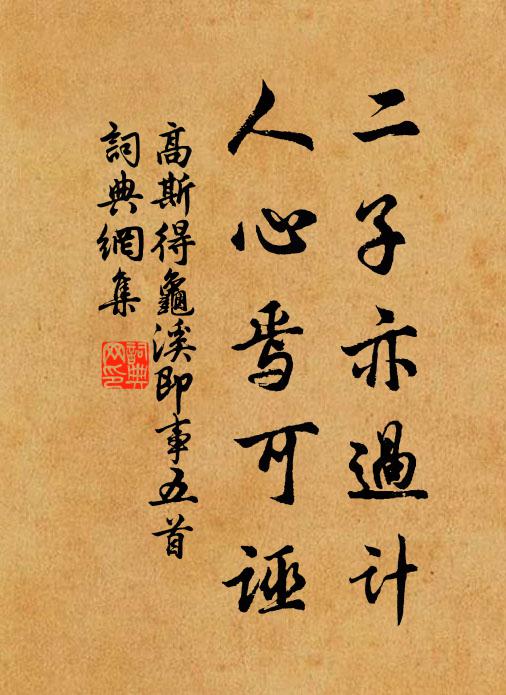 二子亦過計
人心焉可誣
高斯得龜溪即事五首
詞典網集
詞典網印